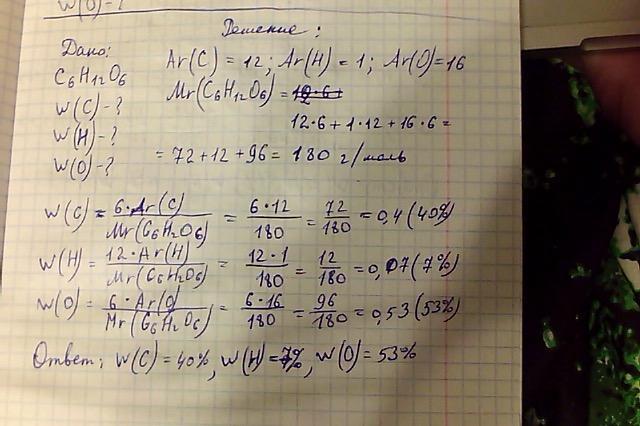 W(O)-?
Решение:
Дано:
C6H12O6
W(C)-?
W(H)-?
W(O)-?
Ar(C) = 12; Ar(H) = 1; Ar(O)=16
Mr(C6H12O6) =
12·6 + 1·12 + 16·6 =
= 72+12+96 = 180 г/моль
W(C) = 6·Ar(C) / Mr(C6H2O6) = 6·12 / 180 = 72 / 180 = 0,4 (40%)
W(H) = 12·Ar(H) / Mr(C6H2O6) = 12·1 / 180 = 12 / 180 = 0,07 (7%)
W(O) = 6·Ar(O) / Mr(C6H2O6) = 6·16 / 180 = 96 / 180 = 0,53 (53%)
Ответ: W(C) = 40%, W(H) = 7%, W(O) = 53%